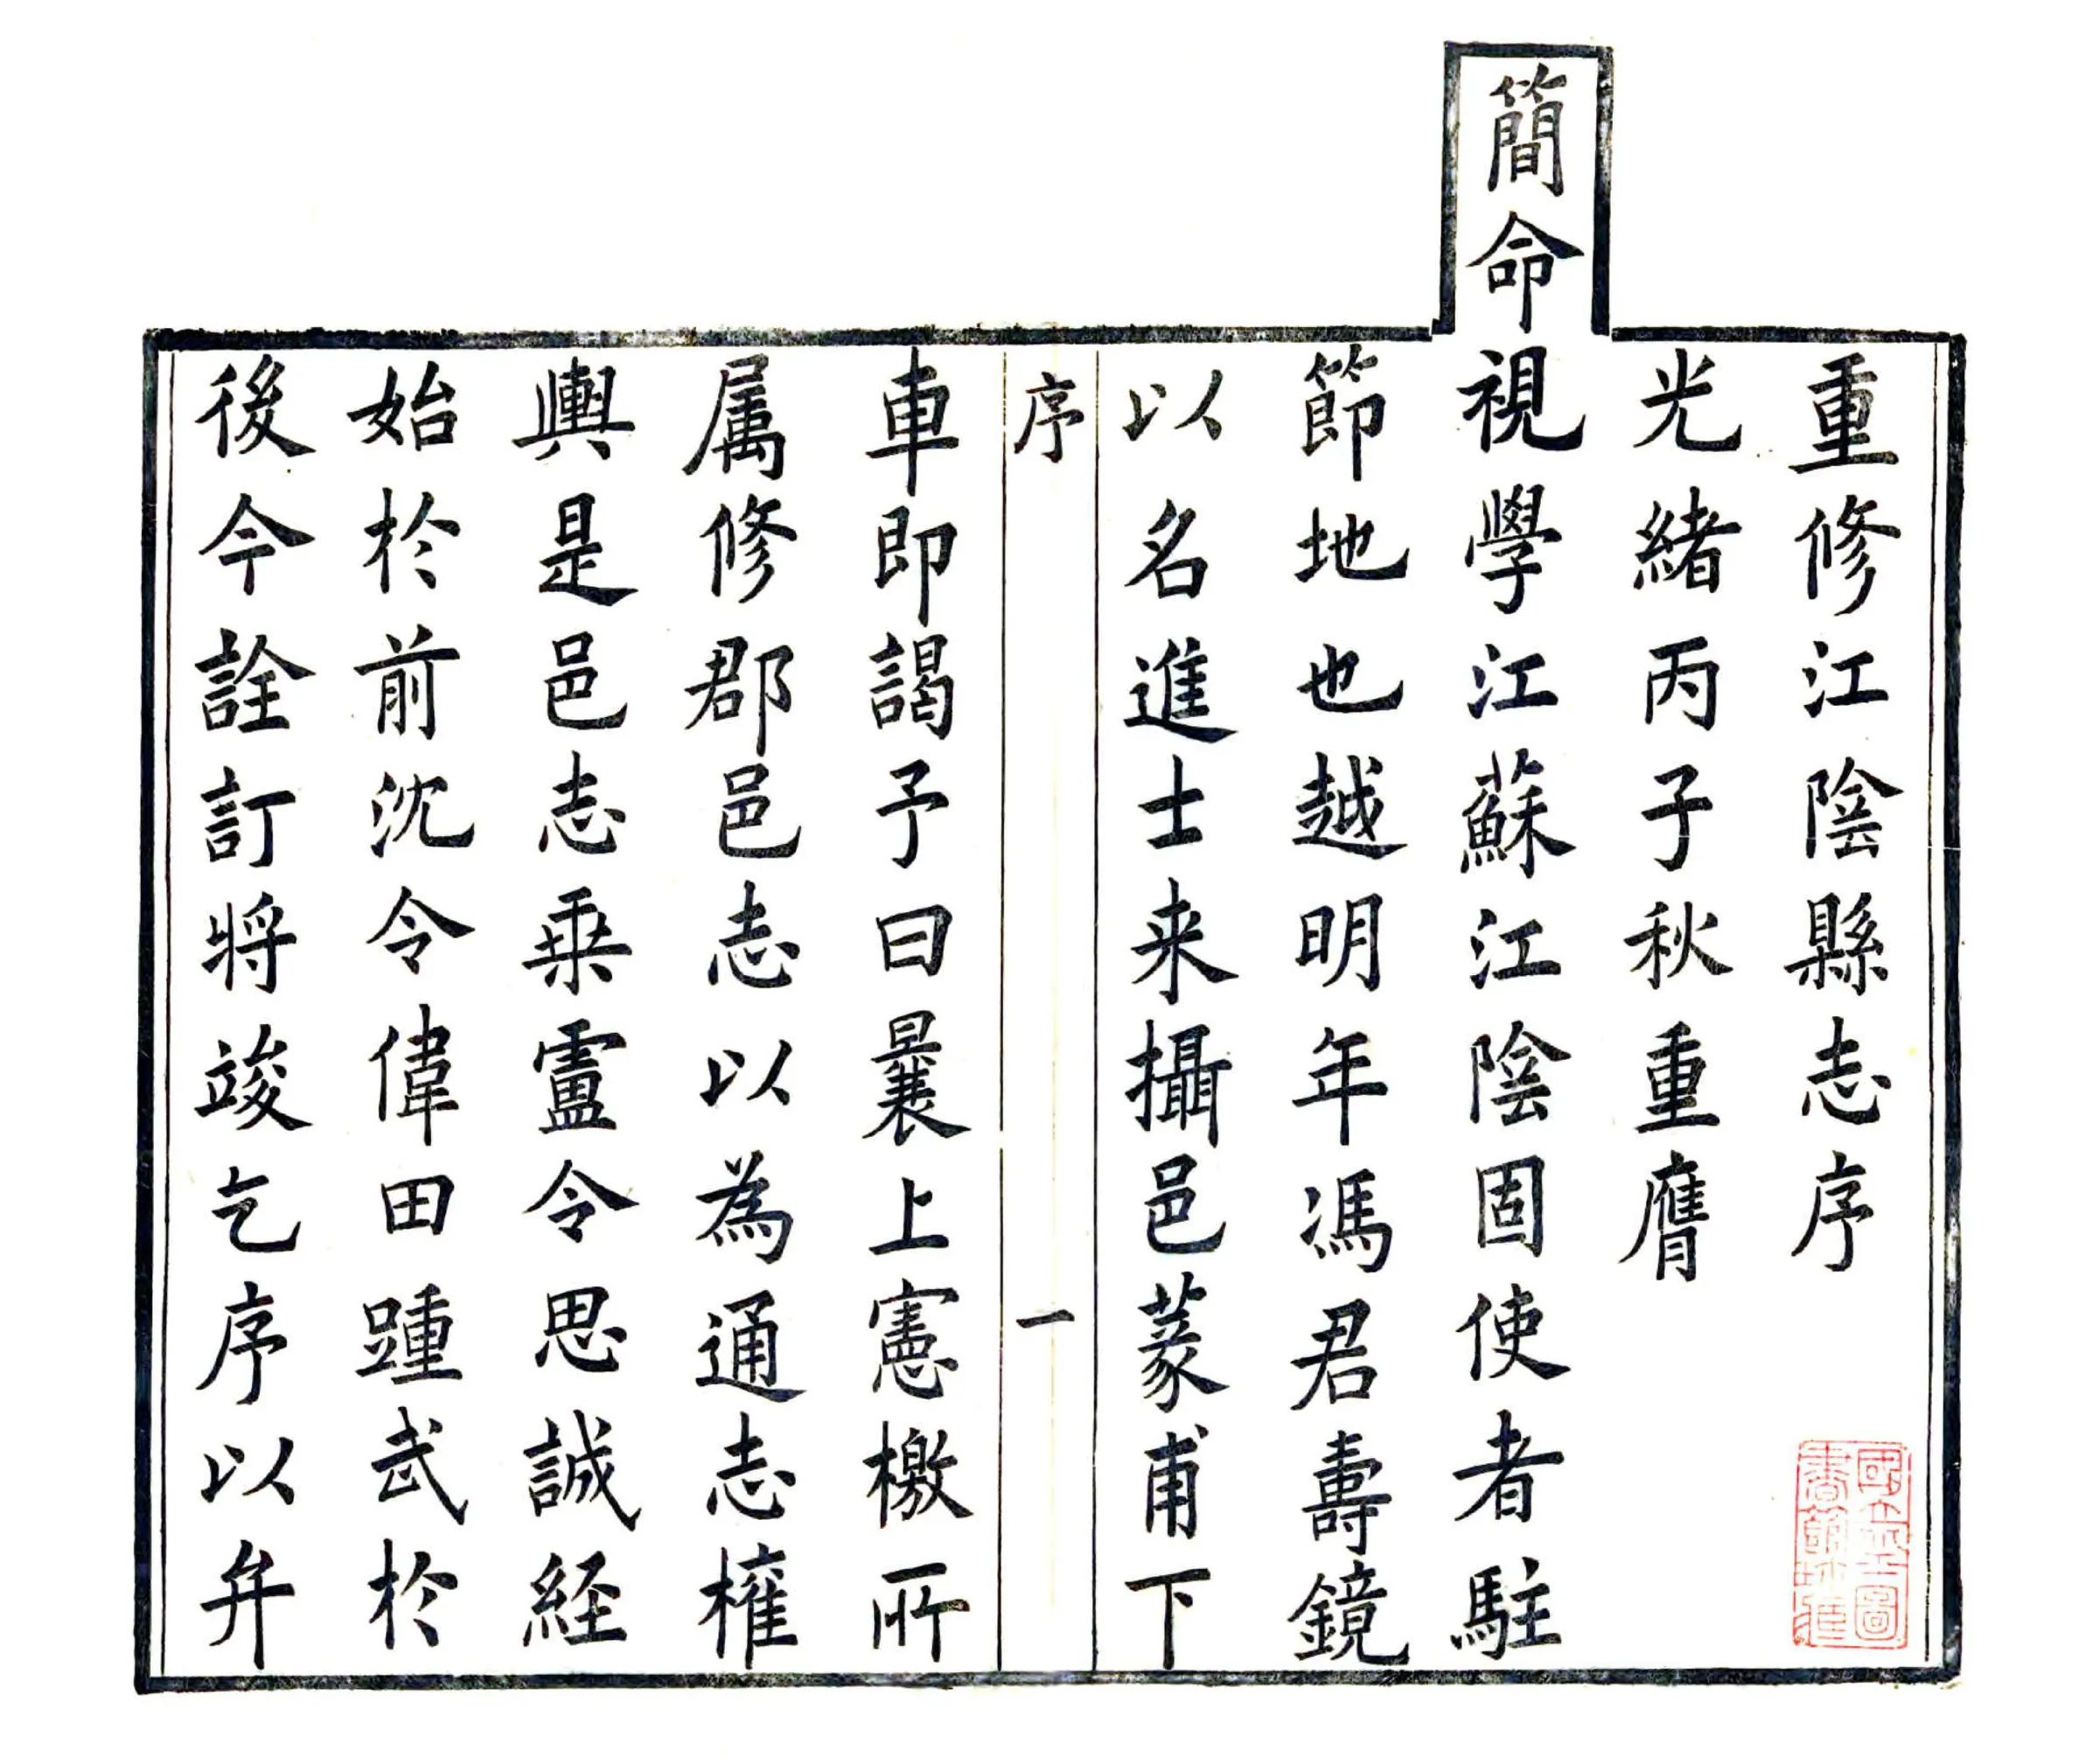 重修江陰縣志序
光緒丙子秋重膺
簡命視學江蘇江陰固使者駐
節地也越明年馮君壽鏡
以名進士来攝邑篆甫下
序 一
車即謁予曰曩上憲檄所
属修郡邑志以為通志榷
輿是邑志乗盧令思誠経
始於前沈令偉田踵武於
後今詮訂將竣乞序以弁
國立北平圖書館收藏